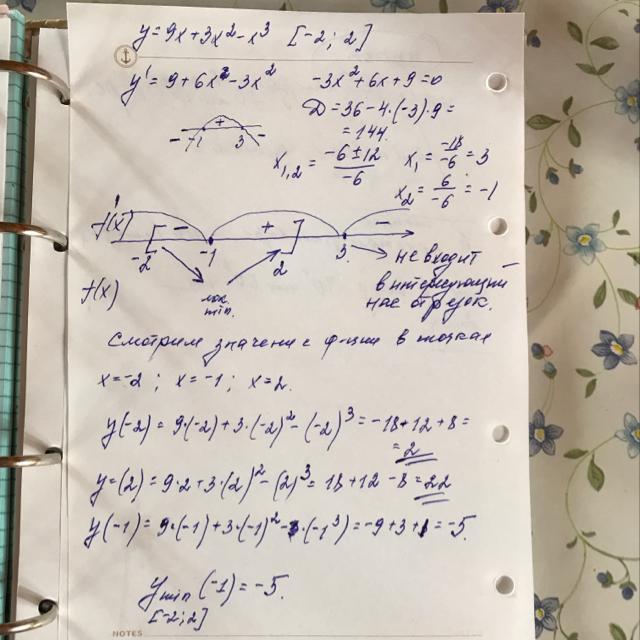 y=9x+3x²-x³ [-2; 2]
y'=9+6x-3x² -3x²+6x+9=0
D=36-4·(-3)·9=
=144.
+
- -1 3 -
x₁,₂ = (-6±12)/-6 x₁ = -18/-6 = 3
x₂ = 6/-6 = -1
f'(x) - + -
-2 -1 2 3 не входит
в интересующий
нас отрезок.
f(x) лок. min.
Смотрим значение ф-ции в точках
x=-2 ; x=-1 ; x=2.
y(-2)=9·(-2)+3·(-2)²-(-2)³=-18+12+8=
=2
y=(2)=9·2+3·(2)²-(2)³=18+12-8=22
y(-1)=9·(-1)+3·(-1)²-(-1³)=-9+3+1=-5.
y min (-1)=-5.
[-2;2]
NOTES